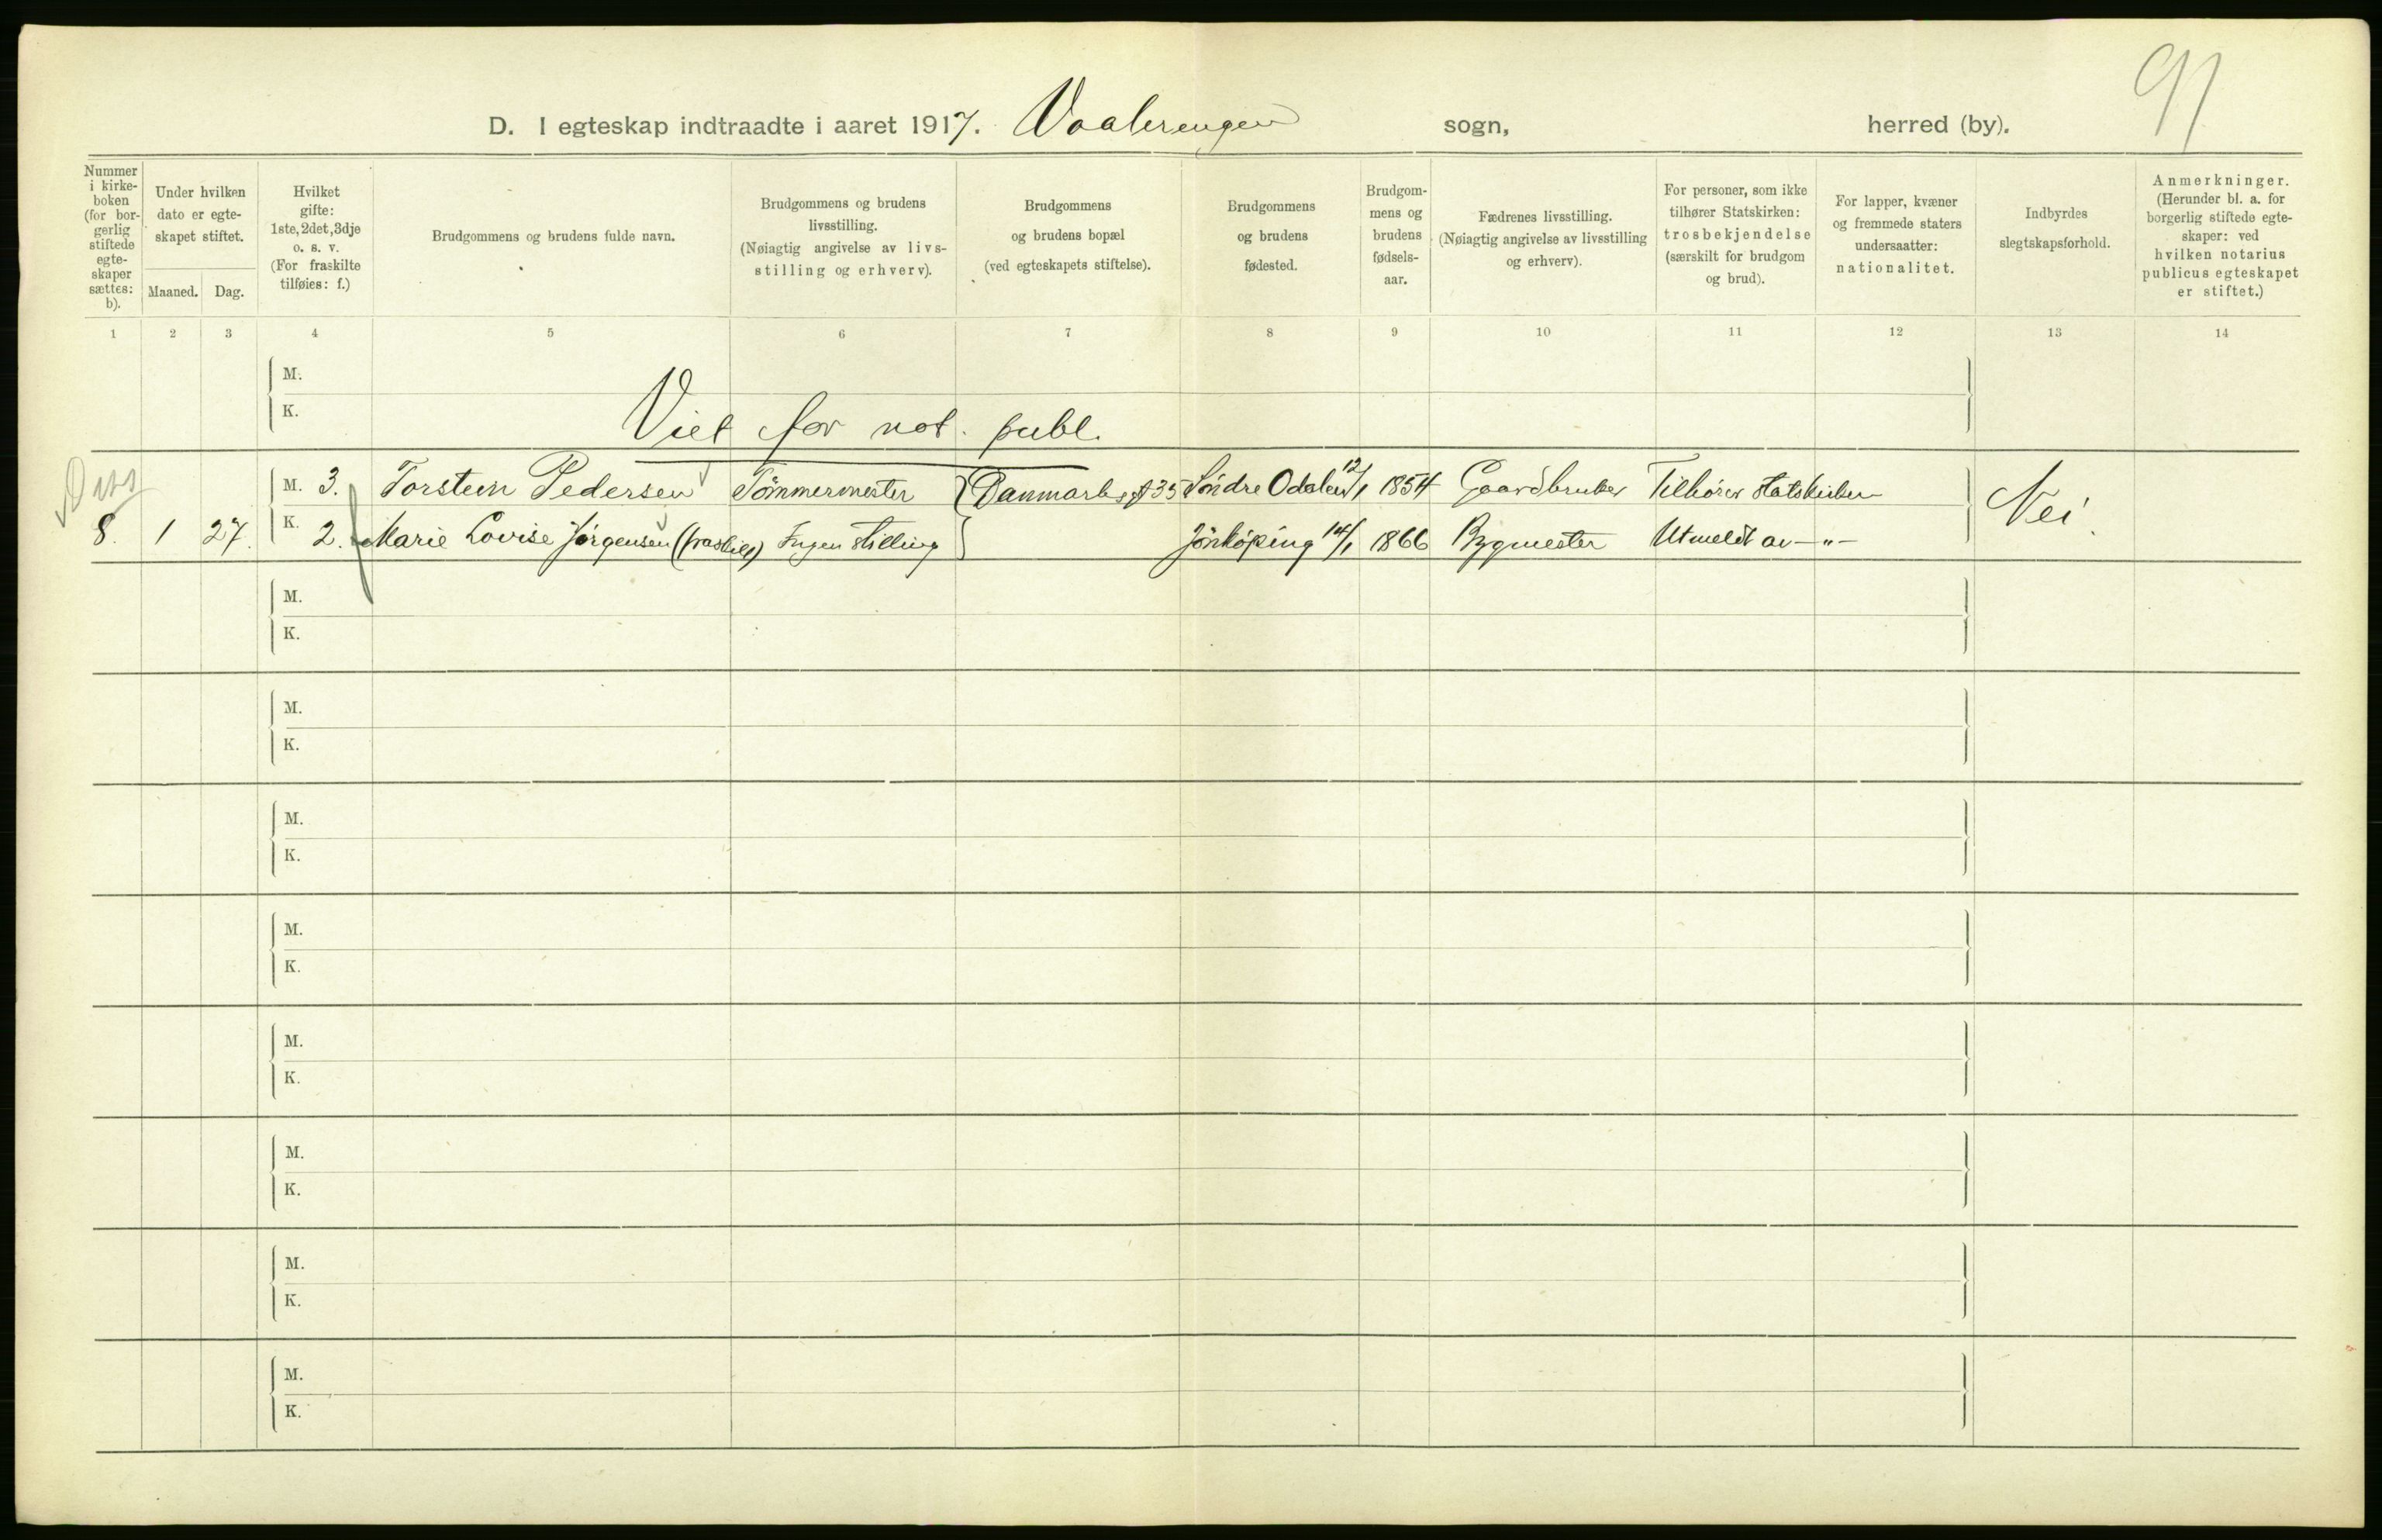 91
D. I egteskap indtraadte i aaret 1917. Vaalerengen sogn, herred (by).
Nummer i kirke- boken (for bor- gerlig stiftede egte- skaper sættes: b).
Under hvilken dato er egte- skapet stiftet.
Maaned. Dag.
Hvilket gifte: 1ste, 2det, 3dje o. s. v. (For fraskilte tilføies: f.)
Brudgommens og brudens fulde navn.
Brudgommens og brudens livsstilling. (Nøiagtig angivelse av livs- stilling og erhverv).
Brudgommens og brudens bopæl (ved egteskapets stiftelse).
Brudgommens og brudens fødested.
Brudgom- mens og brudens fødsels- aar.
Fædrenes livsstilling. (Nøiagtig angivelse av livsstilling og erhverv).
For personer, som ikke tilhører Statskirken: trosbekjendelse (særskilt for brudgom og brud).
For lapper, kvæner og fremmede staters undersaatter: nationalitet.
Indbyrdes slegtskapsforhold.
Anmerkninger. (Herunder bl. a. for borgerlig stiftede egte- skaper: ved hvilken notarius publicus egteskapet er stiftet.)
1 2 3 4 5 6 7 8 9 10 11 12 13 14
M.
K.
Viet for not. publ.
M. 3. Torstein Pedersen Tömmermester Danmarks gt 35 Söndre Odalen 12/1 1854 Gaardbruker Tilhörer Statskirken Nei.
8. 1 27. K. 2. Marie Lovise Jörgensen (fraskilt) Ingen stilling Jönköping 14/1 1866 Bygmester Utmeldt av —"—
M.
K.
M.
K.
M.
K.
M.
K.
M.
K.
M.
K.
M.
K.
M.
K.